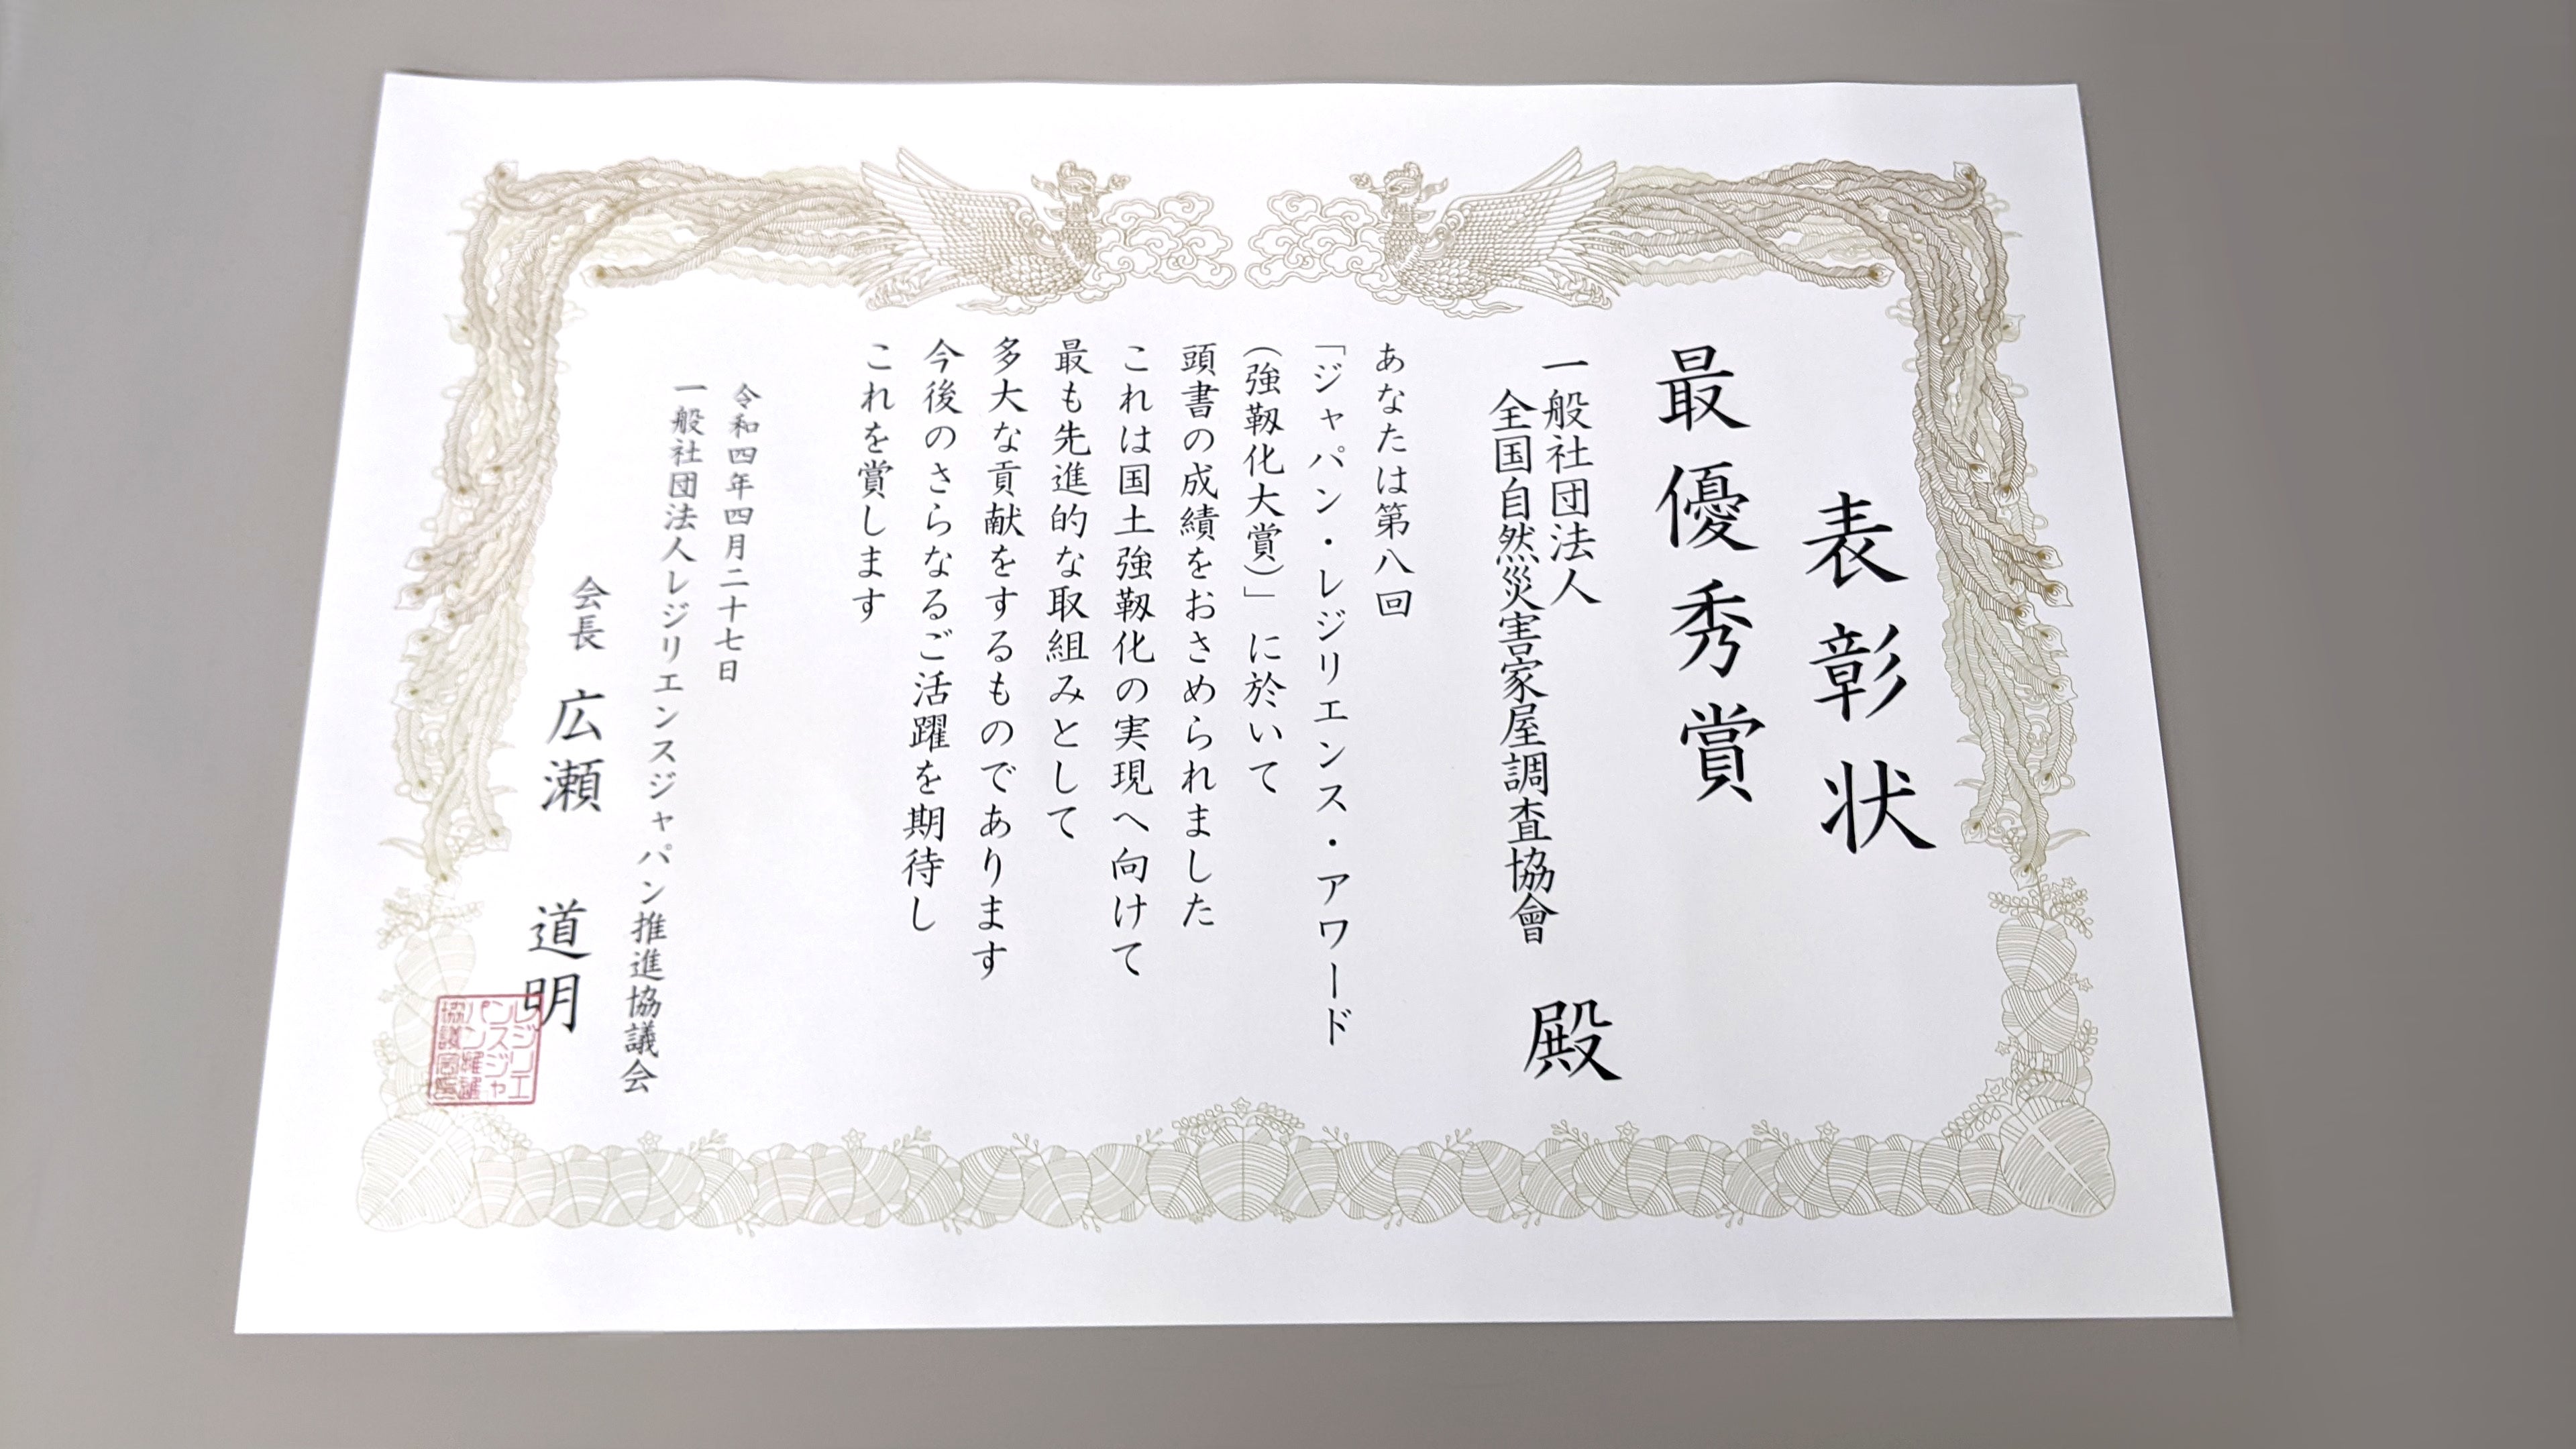 表彰状
最優秀賞
一般社団法人
全国自然災害家屋調査協會 殿
あなたは第八回
「ジャパン・レジリエンス・アワード
(強靱化大賞)」に於いて
頭書の成績をおさめられました
これは国土強靱化の実現へ向けて
最も先進的な取組みとして
多大な貢献をするものであります
今後のさらなるご活躍を期待し
これを賞します
令和四年四月二十七日
一般社団法人レジリエンスジャパン推進協議会
会長 広瀬 道明
レジリエ
ンスジャ
パン推進
協議会